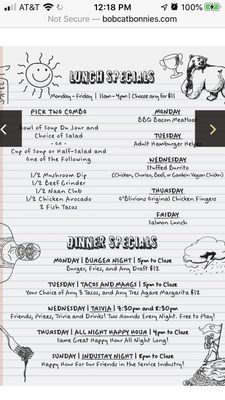 AT&T 12:18 PM 100%
Not Secure — bobcatbonnies.com
LUNCH SPECIALS
Monday - Friday | 11am - 4pm | Choose any for $11
PICK TWO COMBO
Bowl of Soup Du Jour and
Choice of Salad
- or -
Cup of Soup or Half-Salad and
One of the Following
1/2 Mushroom Dip
1/2 Beef Grinder
1/2 Naan Club
1/2 Chicken Avocado
2 Fish Tacos
MONDAY
BBQ Bacon Meatloaf
TUESDAY
Adult Hamburger Helper
WEDNESDAY
Stuffed Burrito
(Chicken, Chorizo, Beef, or Gardein Vegan Chickn)
THURSDAY
O'Blivion's Original Chicken Fingers
FRIDAY
Salmon Lunch
DINNER SPECIALS
MONDAY | BURGER NIGHT | 5pm to Close
Burger, Fries, and Any Draft $12
TUESDAY | TACOS AND MARGS | 5pm to Close
Your Choice of Any 3 Tacos, and Any Tres Agave Margarita $12
WEDNESDAY | TRIVIA | 7:30pm and 8:30pm
Friends, Prizes, Trivia and Drinks! Two Rounds Every Night. Free to Play!
THURSDAY | ALL NIGHT HAPPY HOUR | 4pm to Close
Same Great Happy Hour All Night Long!
SUNDAY | INDUSTRY NIGHT | 8pm to Close
Happy Hour For Our Friends in the Service Industry!